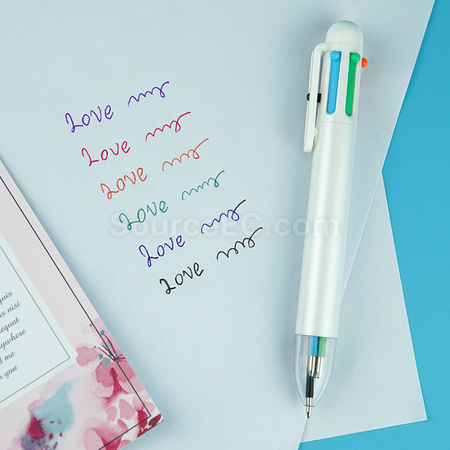 Love
Love
Love
Love
Love
Love
SourceEC.com
quis
is nisi
equat
ywhere
d me
n you